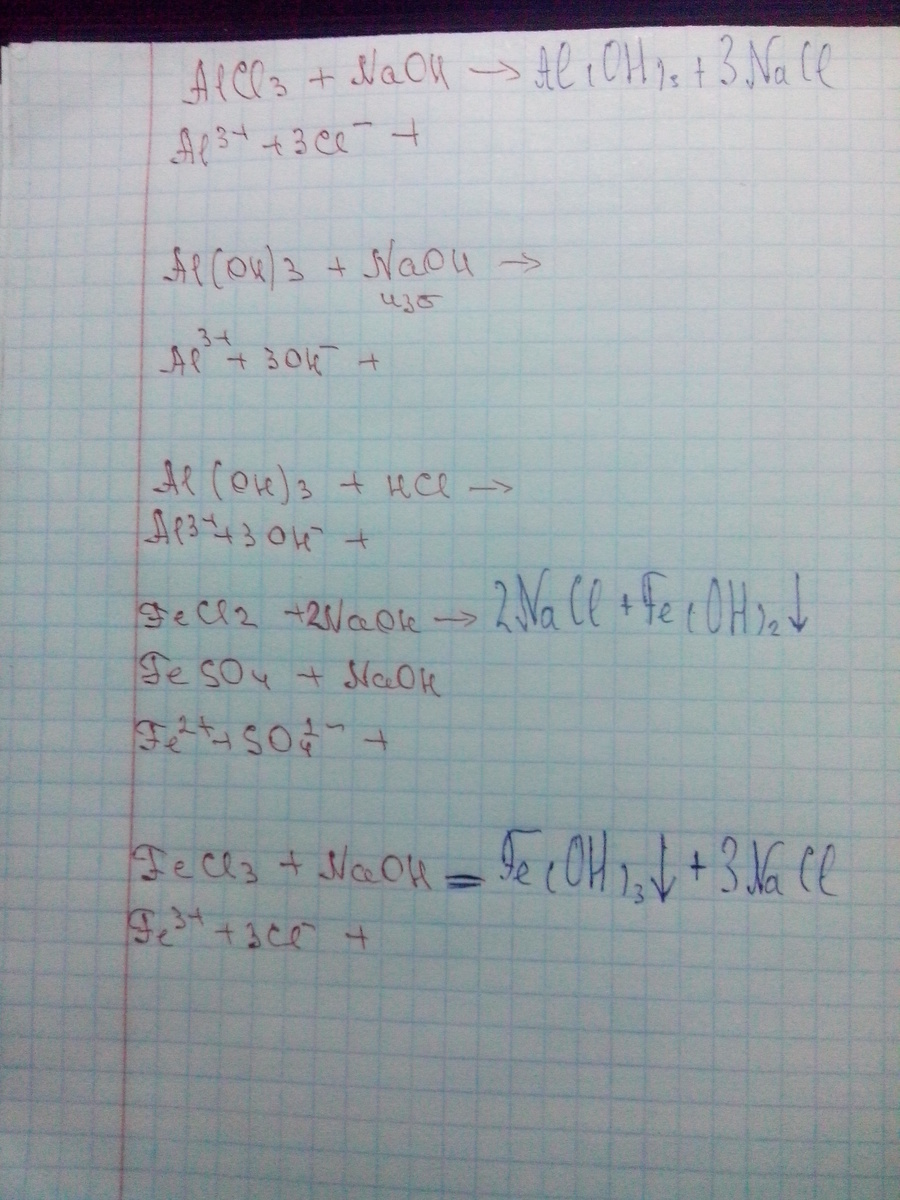 AlCl₃ + NaOH → Al(OH)₃ + 3NaCl
Al³⁺ + 3Cl⁻ +
Al(OH)₃ + NaOH →
изб
Al³⁺ + 3OH⁻ +
Al(OH)₃ + HCl →
Al³⁺ + 3OH⁻ +
FeCl₂ + 2NaOH → 2NaCl + Fe(OH)₂↓
FeSO₄ + NaOH
Fe²⁺ + SO₄²⁻ +
FeCl₃ + NaOH = Fe(OH)₃↓ + 3NaCl
Fe³⁺ + 3Cl⁻ +